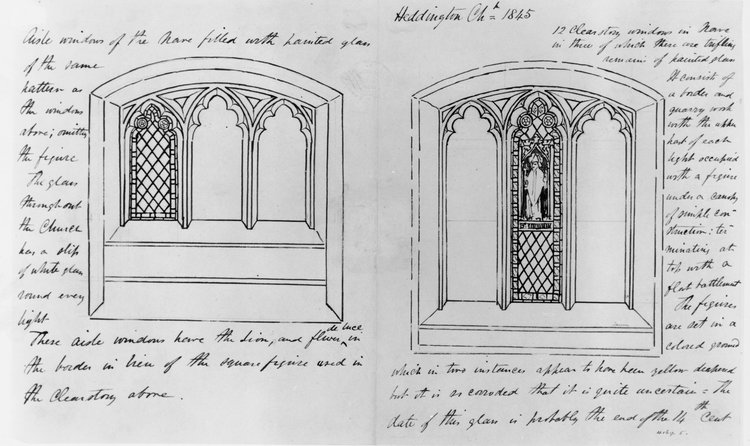 Aisle windows of the Nave filled with painted glass
of the same
pattern as
the windows
above; omitting
the figure
The glass
throughout
the Church
has a slip
of white glass
round every
light
These aisle windows have the Lion, and fleur de luce in
the border in lieu of the square figure used in
the Clearstory above.
Heddington Chh = 1845
12 Clearstory windows in Nave
in three of which there are trifling
remains of painted glass
It consists of
a border and
quarry work
with the upper
part of each
light occupied
with a figure
under a canopy
of simple con-
struction: ter-
minating at
top with a
flat battlement
The figures
are set in a
colored ground
which in two instances appear to have been yellow diapered
but it is so corroded that it is quite uncertain = The
date of this glass is probably the end of the 14th Cent